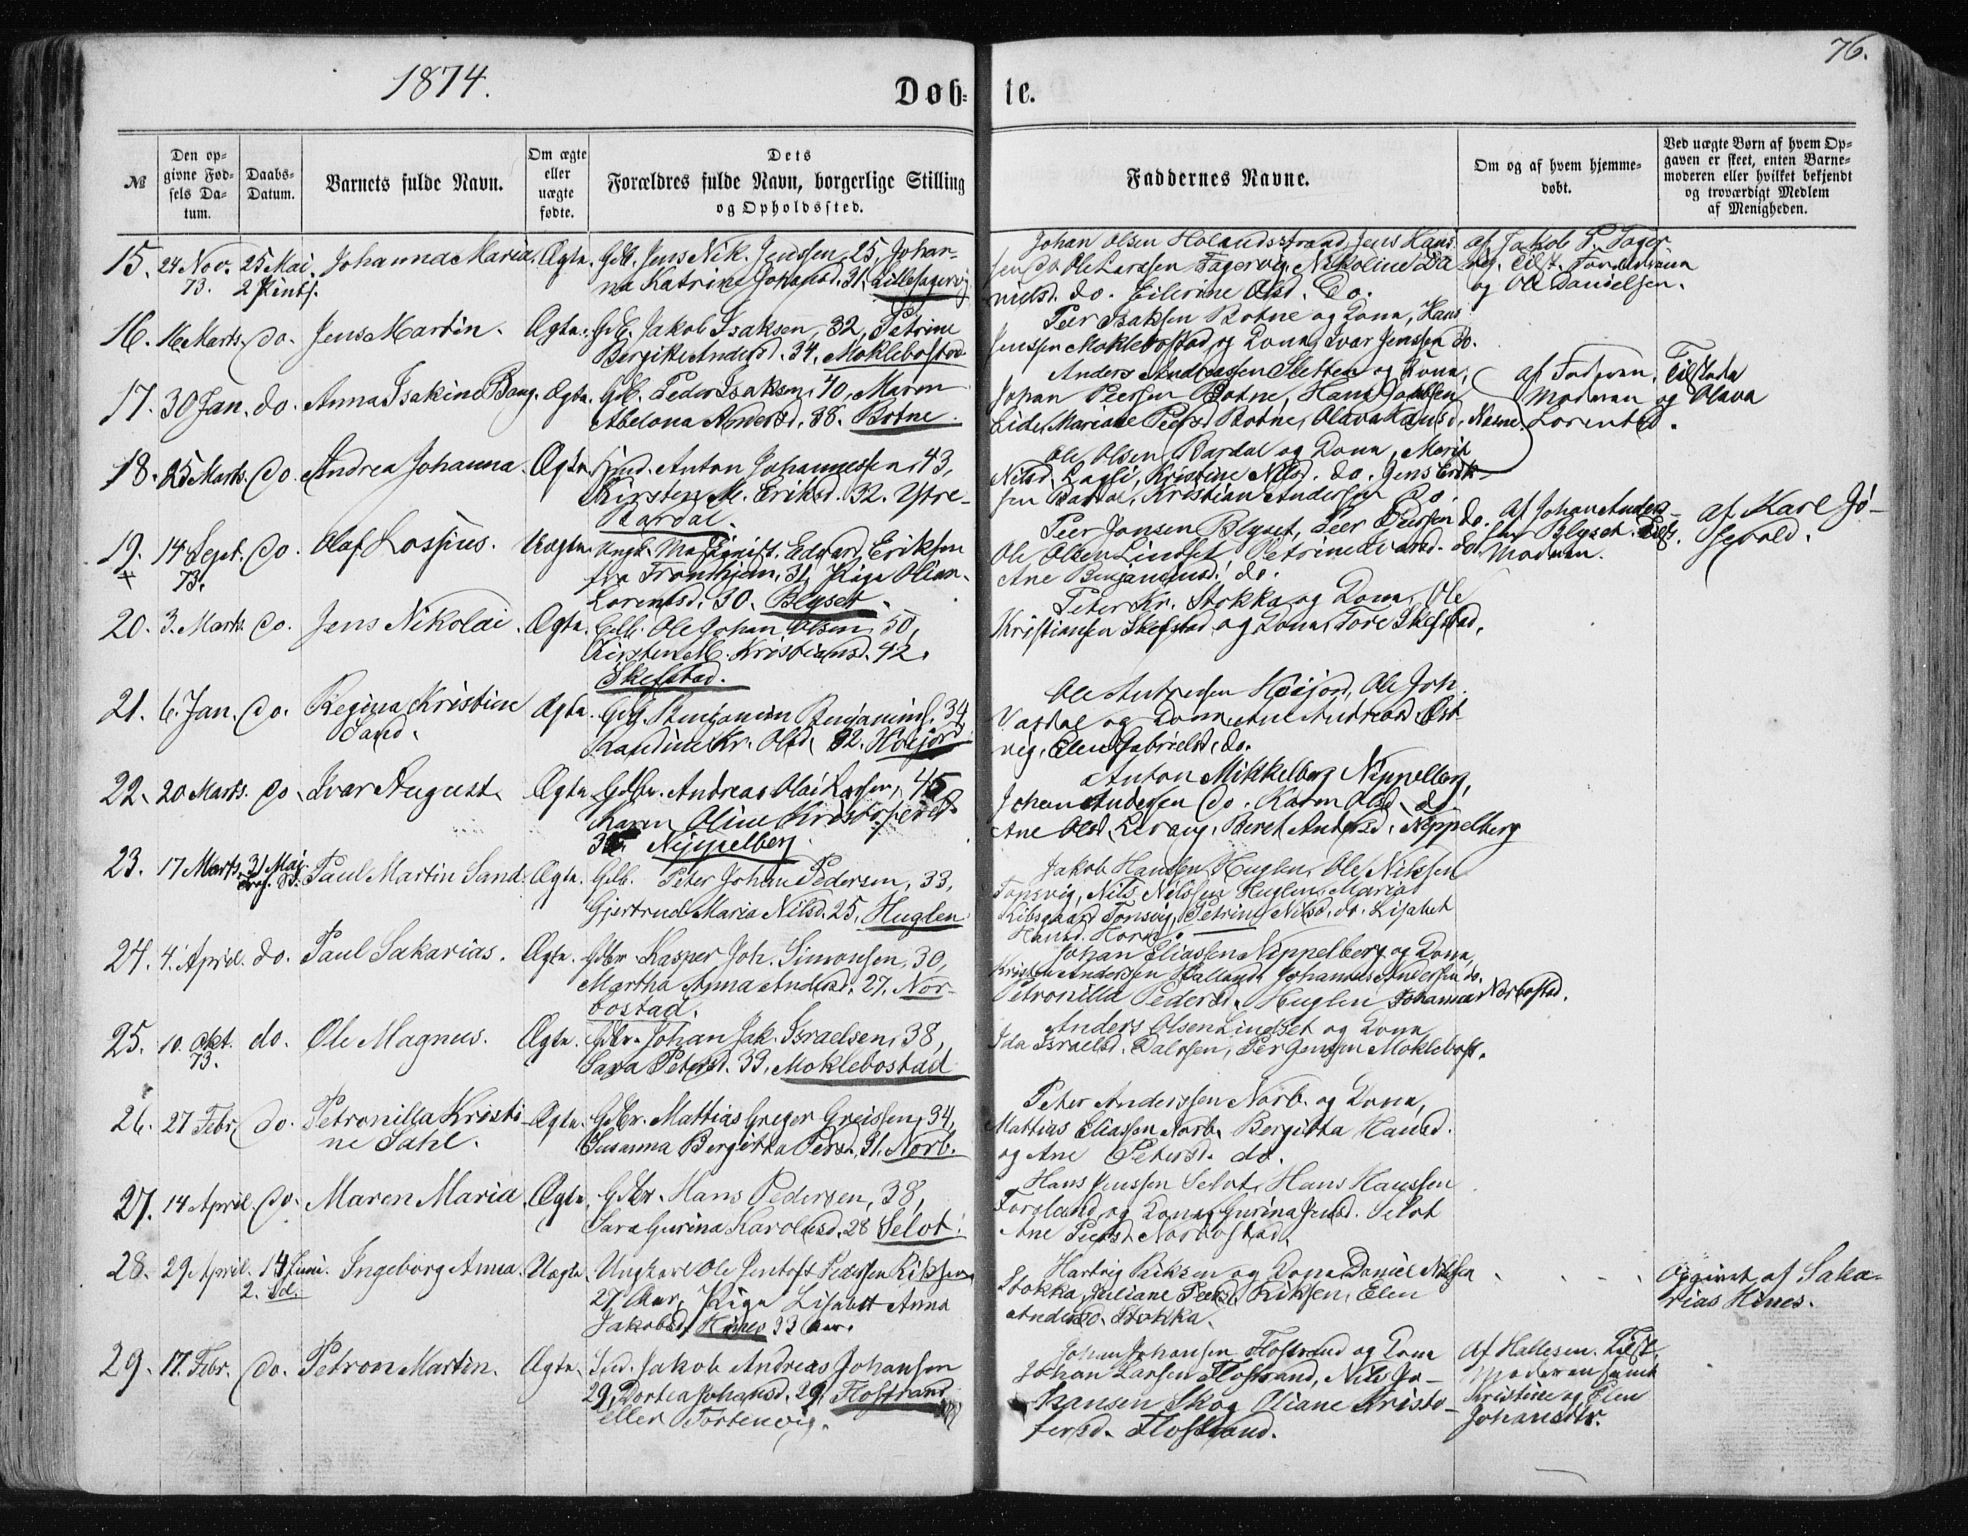 1874.
Døb=
te.
76.
№
Den op=
givne Fød=
sels Da=
tum.
Daabs=
Datum.
Barnets fulde Navn.
Om ægte
eller
uægte
fødte.
Dets
Forældres fulde Navn, borgerlige Stilling
og Opholdssted.
Faddernes Navne.
Om og af hvem hjemme=
døbt.
Ved uægte Børn af hvem Op=
gaven er skeet, enten Barne=
moderen eller hvilket bekjendt
og troværdigt Medlem
af Menigheden.
15. 24 Nov. 25 Mai. Johanna Maria. Ægte. Gdb. Jens Nik. Jenssen 25, Johan-
73. 2 Pints. na Katrine 31.
Johan Olsen Holandsstrand, Jens Hans-
sen do. Ole Larssen Fagervig, Nikoline Da-
nielsd. do. Eilerine Olsd. Do.
af Jakob P. Fager-
og Ole Danielsen.
16. 16 Marts. do. Jens Martin. Ægte. Gdb. Jakob Isaksen, 32, Petrine
Andersd. 34, Moklebostad
Peer Isaksen Botne og Kona, Hans
Jenssen Moklebostad og Kona, Ivar Jenssen Do.
17. 30 Jan. do. Anna Isakine Bang. Ægte. Gdb. Peder Isaksen, 40, Maren
Abelona Andersd. 38. Botne.
Anders Andreassen Sletten og Kona,
Johan Peersen Botne, Hans
Eide, Mariane Peersd. Botne, Olava Hansd. Nesne.
af Faderen. Tilstede
Moderen og Olava
Lorentsd.
18. 25 Marts. do. Andrea Johanna. Ægte. Anton Johannessen, 43,
Kirsten M. Eriksd. 32. Ytre-
Bardal.
Ole Olsen Bardal og Kona, Merit
Nilsd. Kristine Nilsd. do. Jens Erik-
sen Bardal, Kristian Andersen Do.
19. 14 Sept. do. Olaf Lossius. Uægte. Ungk. Edvard Eriksen
+ 73. fra Trondhjem, 31, Pige Olian-
Lorentsd. 30. Blyset.
Peer Jonsen Blyset, Peer Peersen do.
Ole Olsen Lindset Petrine Ivarsd. do.
Ane Benjaminsd. do.
af Johan Anders-
sen Blyset. Tilst.
Moderen.
af Karl Jö-
sevold.
20. 3. Marts. do. Jens Nikolai. Ægte. Gdb. Ole Johan Olsen, 50,
Kirsten M. Kristiansd. 42.
Skefstad.
Peter Kr. Stokka og Kona, Ole
Kristiansen Skefstad og Kona, Tore Skefstad.
21. 6. Jan. do. Regina Kristine Ægte. Gdb. Benjamin Benjamins. 34
Sand. Kr. Olsd. 32. Höijord
Ole Andreasen Höijord, Ole Joh.
og Kona, Ane Andreasd.
vig, Elen Gabrielsd. do.
22. 20 Marts. do. Ivar August. Ægte Gdbr. Andreas Olai Larsen, 45
Karen Oline Kristophersd.
Nippelberg.
Anton Mikkelborg Nippelberg,
Johan Andersen do. Karen Olsd. do.
Ane Olsd. Beret Andersd. Nippelberg
23. 17 Marts. 31 Mai Paul Martin Sand. Ægte. Gdb. Peter Johan Pedersen, 33,
Gjertrud Maria Nilsd. 25. Huglen
Jakob Hansen Huglen, Ole Niksen
Nils Nilssen Huglen, Marias
Petrine Nilsd. do. Lisabet
Hansd.
24. 4. April. do. Paul Sakarias. Ægte. Gdbr. Kasper Joh. Simonsen, 30,
Martha Anna Andersd. 27. Nor-
bostad.
Johan Eliassen Nippelberg og Kona,
Andersen Johannes Andersen do.
Petronilla Pedersd. Huglen Norbostad.
25. 10. Okt. do. Ole Magnus. Ægte. Gdbr. Johan Jak. Israelsen, 38,
73. Sara Petersd. 33, Moklebostad
Anders Olsen Lindset og Kona
Ida Israelsd. Per Jensen Moklebost.
26. 27 Febr. do. Petronilla Kristi- Ægte. Gdbr. Mattias Greger Greissen, 34,
ne Sahl. Susanna Bergitta Persd. 31. Norb.
Peter Anderssen Norb. og Kona,
Mattias Eliassen Norb. Bergitta Hansd.
og Ane Petersd. do.
27. 14 April. do. Maren Maria Ægte. Gdbr. Hans Pedersen, 38,
Sara Gurina Karolusd. 28 Selot.
Hans Jenssen Selot, Hans Hanssen
Forsland og Kona, Gurina Jensd. Selot
Ane Peersd. Norbostad.
28. 29. April. 14 Juni. Ingeborg Anna. Uægte. Ungkarl Ole Jentoft
2. Sd. 27 Aar, Pige Lisabett Anna
Jakobsd. Hines 33 Aar.
Hartvig Riksen og Kona, Daniel Nilssen
Stokka, Juliane Peersd. Riksen, Elen
Andersd. Stokka.
Opgivet af Saka-
rias Hines.
29. 17. Febr. do. Petron Martin. Ægte. Jakob Andreas Johansen
29, Dortea Johansd. 29, Flostrand
eller Tortenvig.
Johan Johansen Flostrand og Kona
Johan Larsen Flostrand, Nils Jo-
hansen Skog Oliane Kristo-
fersd. Flostrand.
Af Hallesen. Tilst.
Moderen samt
Kristine og Elen